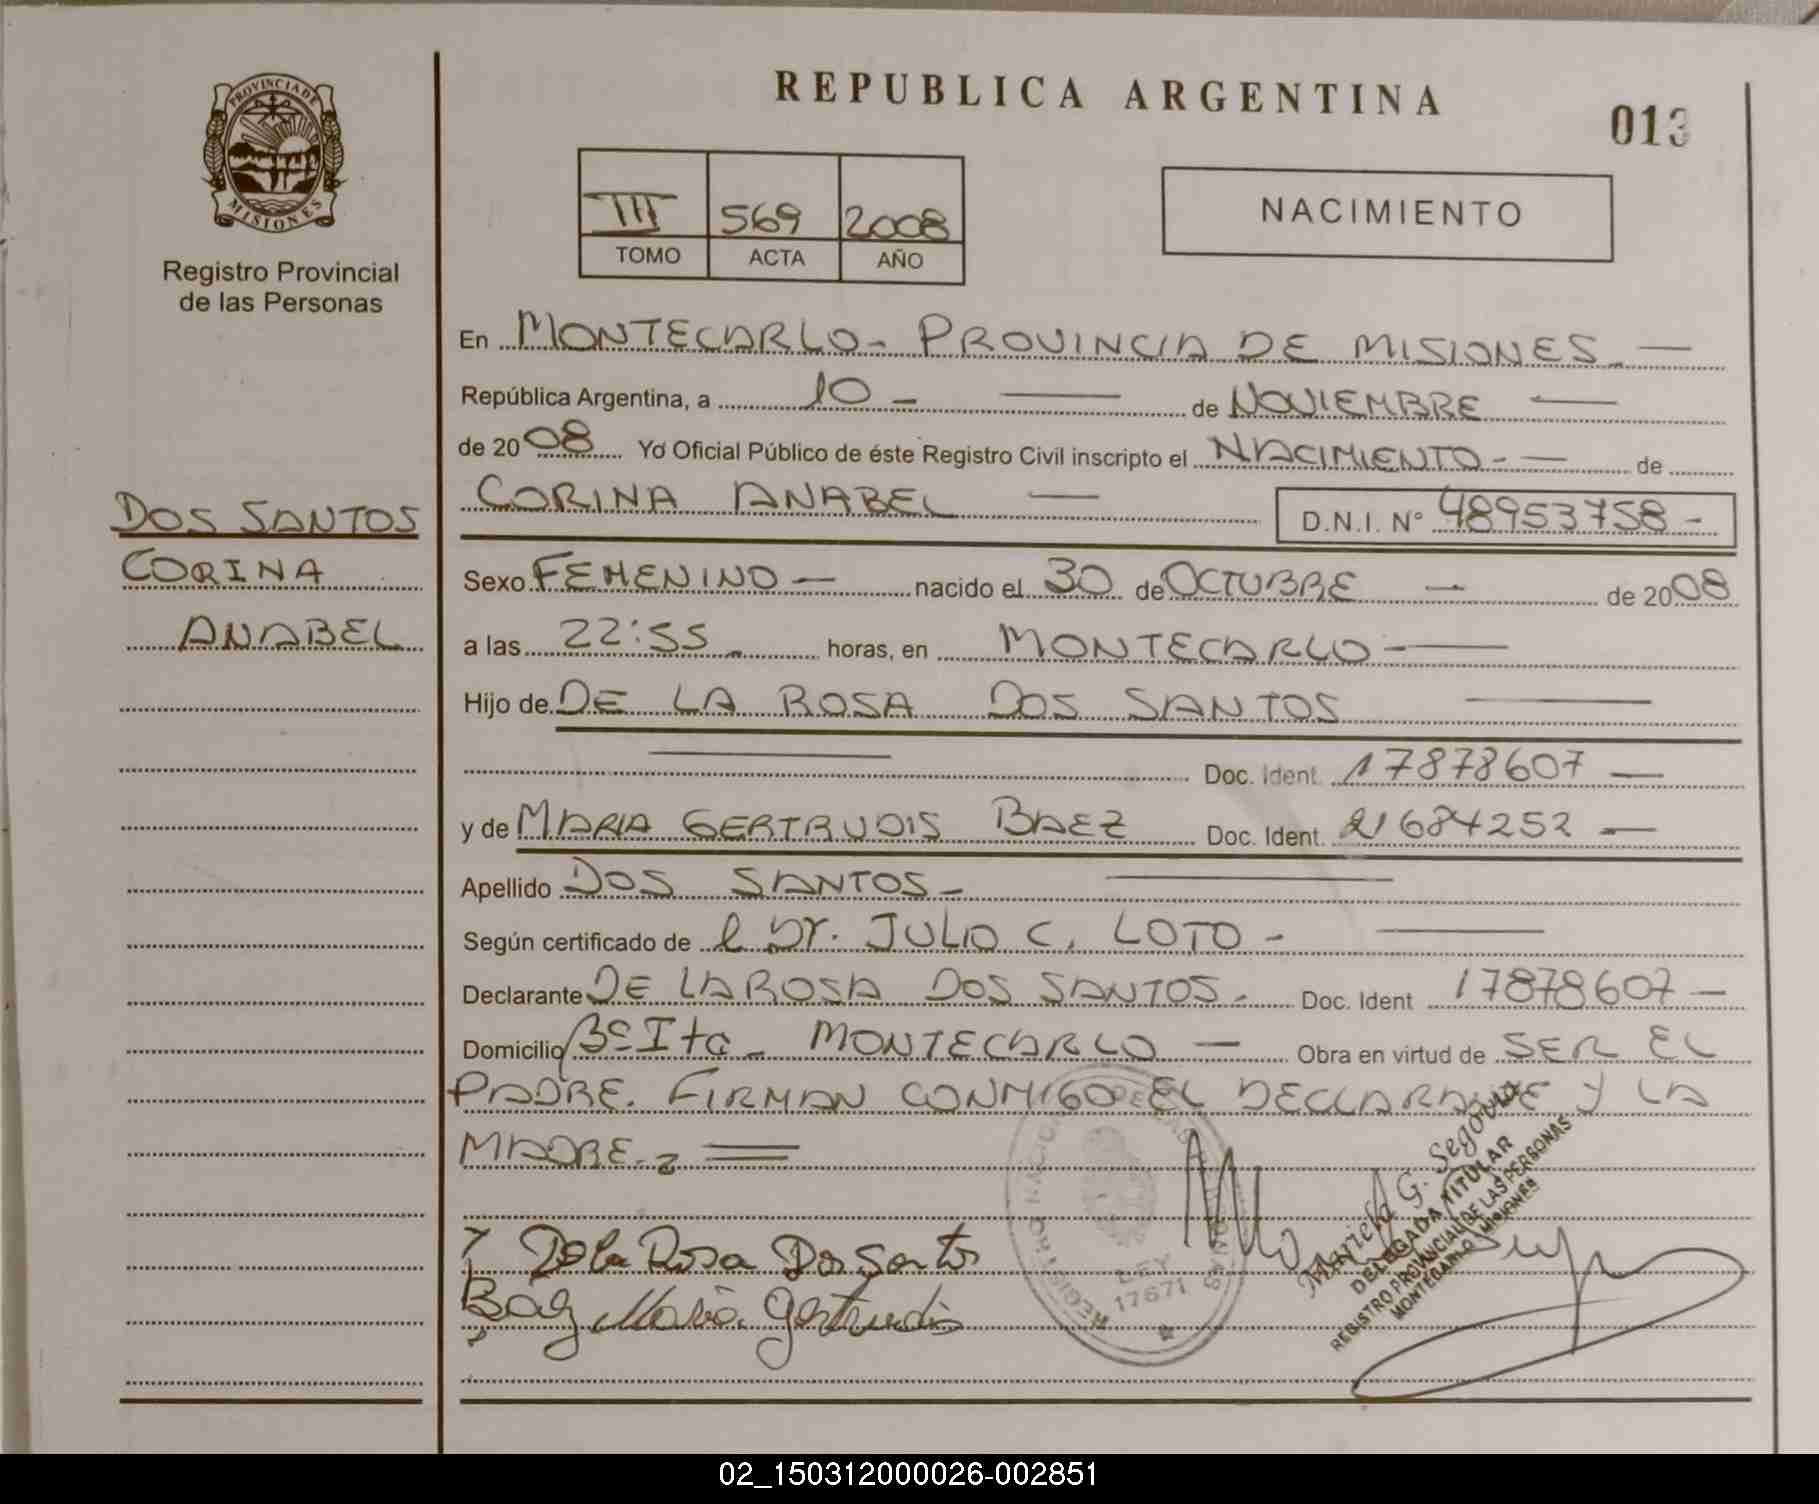 REPUBLICA ARGENTINA
013
PROVINCIA DE
MISIONES
Registro Provincial
de las Personas
III 569 2008
TOMO ACTA AÑO
NACIMIENTO
En MONTECARLO - PROVINCIA DE MISIONES - —
República Argentina, a 10 - — de NOVIEMBRE —
de 2008 Yo Oficial Público de éste Registro Civil inscripto el NACIMIENTO - — de
CORINA ANABEL — D.N.I. N° 48953758 -
DOS SANTOS
CORINA
ANABEL
Sexo FEMENINO — nacido el 30 de OCTUBRE — de 2008
a las 22:55 - horas, en MONTECARLO - —
Hijo de DE LA ROSA DOS SANTOS —
— Doc. Ident. 17878607 —
y de MARIA GERTRUDIS BAEZ Doc. Ident. 21684252 —
Apellido DOS SANTOS - —
Según certificado de l Dr. JULIO C. LOTO - —
Declarante DE LA ROSA DOS SANTOS - Doc. Ident 17878607 —
Domicilio Bº Ita - MONTECARLO — Obra en virtud de SER EL
PADRE. FIRMAN CONMIGO EL DECLARANTE Y LA
MADRE.
De la Rosa Dos Santos
Baez Maria Gertrudis
LEY
17671
Mariela G. Segovia
DELEGADA TITULAR
REGISTRO PROVINCIAL DE LAS PERSONAS
MONTECARLO MISIONES
02_150312000026-002851